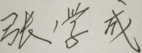 张学成